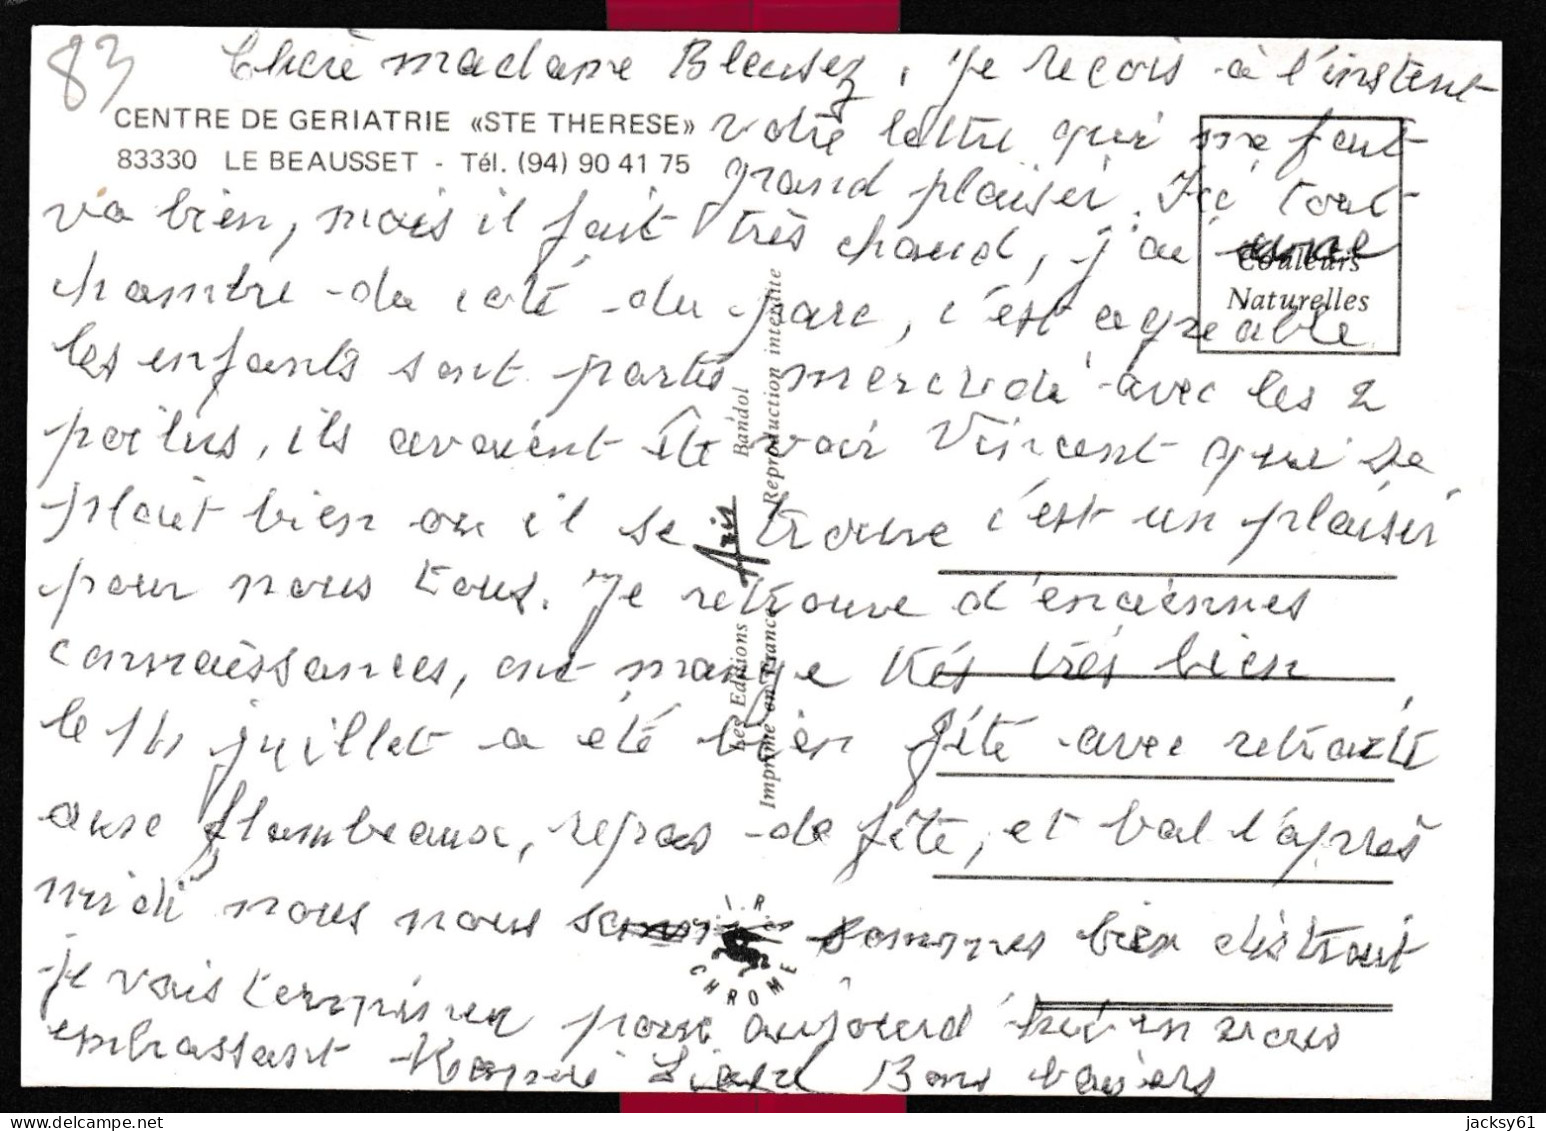 83
Chère madame Bleusez, je reçois à l'instent
CENTRE DE GERIATRIE «STE THERESE»
votre lettre qui me fait
83330 LE BEAUSSET - Tél. (94) 90 41 75
grand plaisir. Ici tout
va bien, mais il fait très chaud, j'ai une
Couleurs
Naturelles
chambre du coté du parc, c'est agreable.
les enfants sont partis mercredi avec les 2
poilus, ils avaient été voir Vincent qui se
plait bien ou il se trouve c'est un plaisir
pour nous tous. Je retrouve d'enciennes
connaissances, ont mange trés trés bien
le 14 juillet a été bien fété avec retraite
aux flambeaux, repas de féte, et bal l'après
midi nous nous sommes bien distrait
je vais terminer pour aujourd'hui en vous
embrassant Bons baisers
Les Editions Aris Bandol
Imprimé en France Reproduction interdite
I.R.I.S.
CHROME
jacksy61